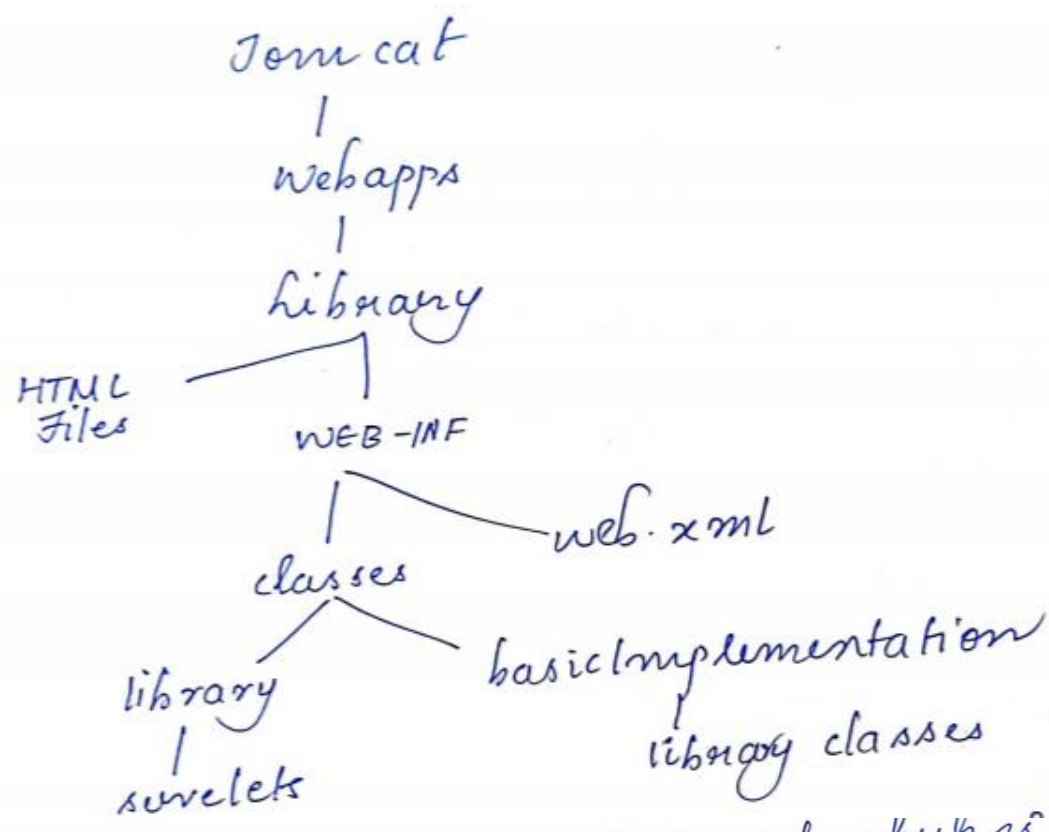 Tomcat
webapps
Library
HTML
Files
WEB-INF
classes
web.xml
library
basicImplementation
servelets
library classes